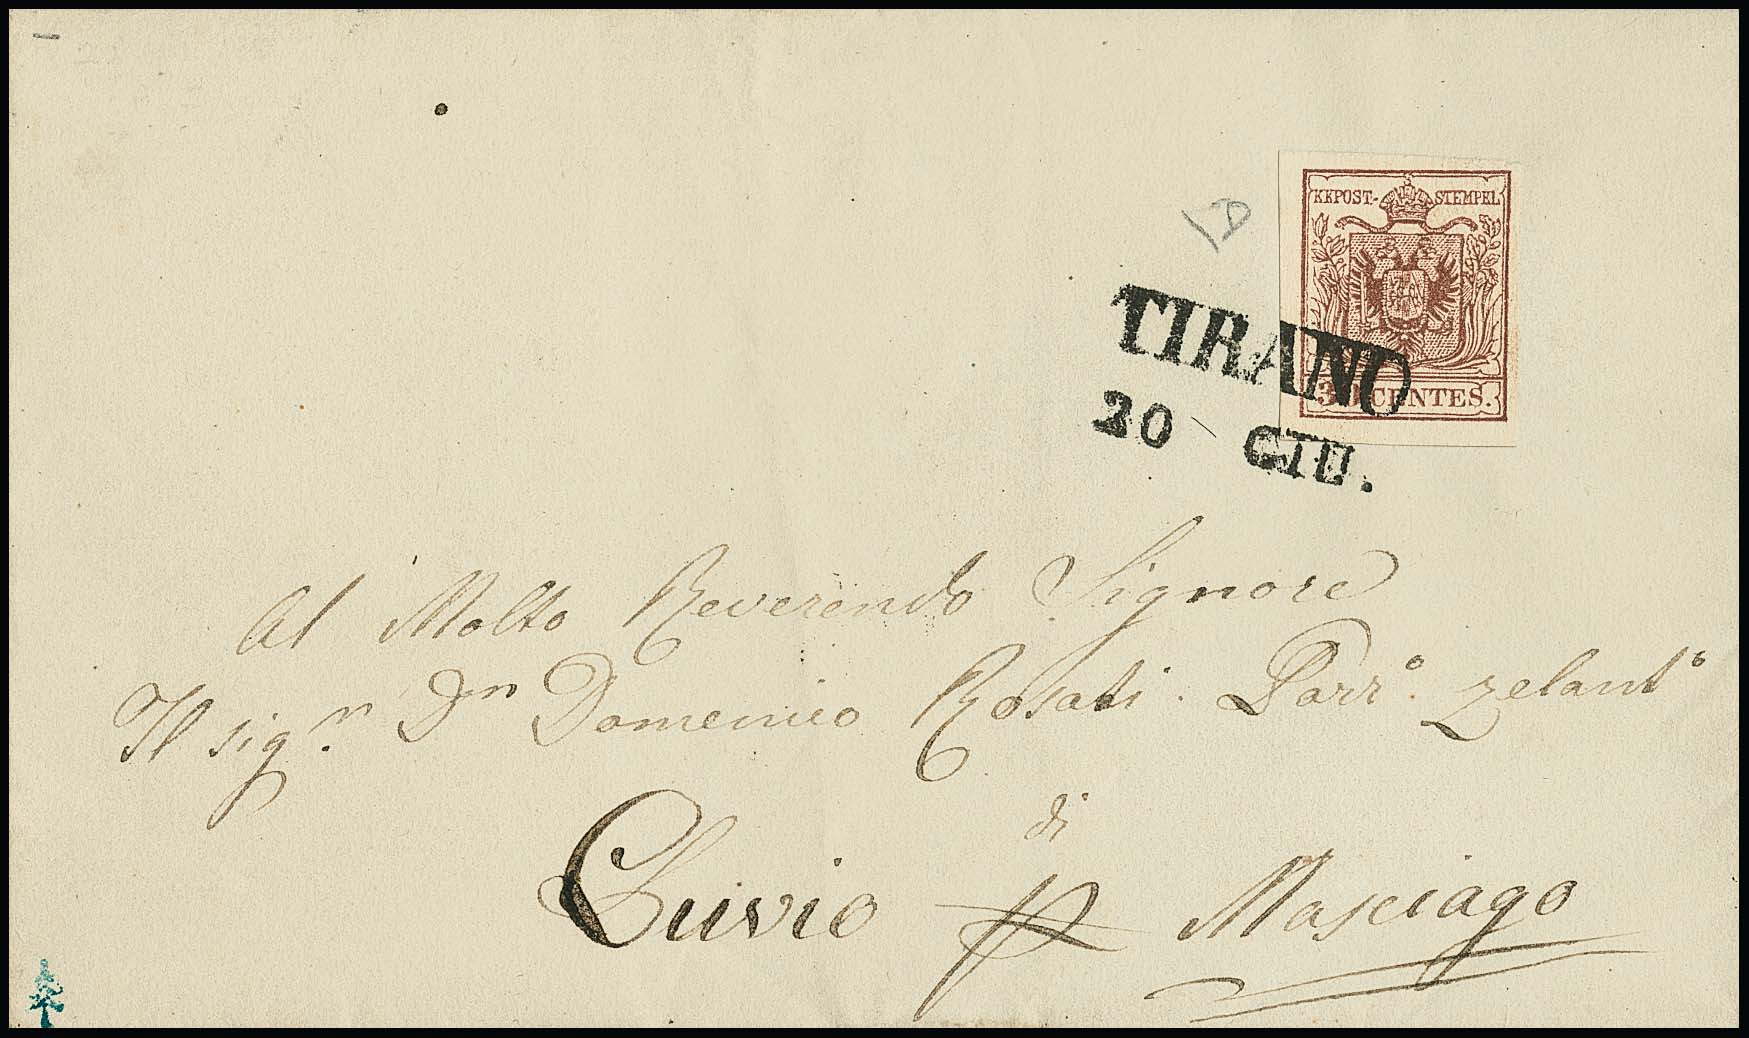 KKPOST-STEMPEL
TIRANO
30 CENTES.
20 GIU.
D
Al Molto Reverendo Signore
Il sigʳ. Dⁿ Domenico Rosati. Parr.° zelant°
di
Cuvio p Masciago